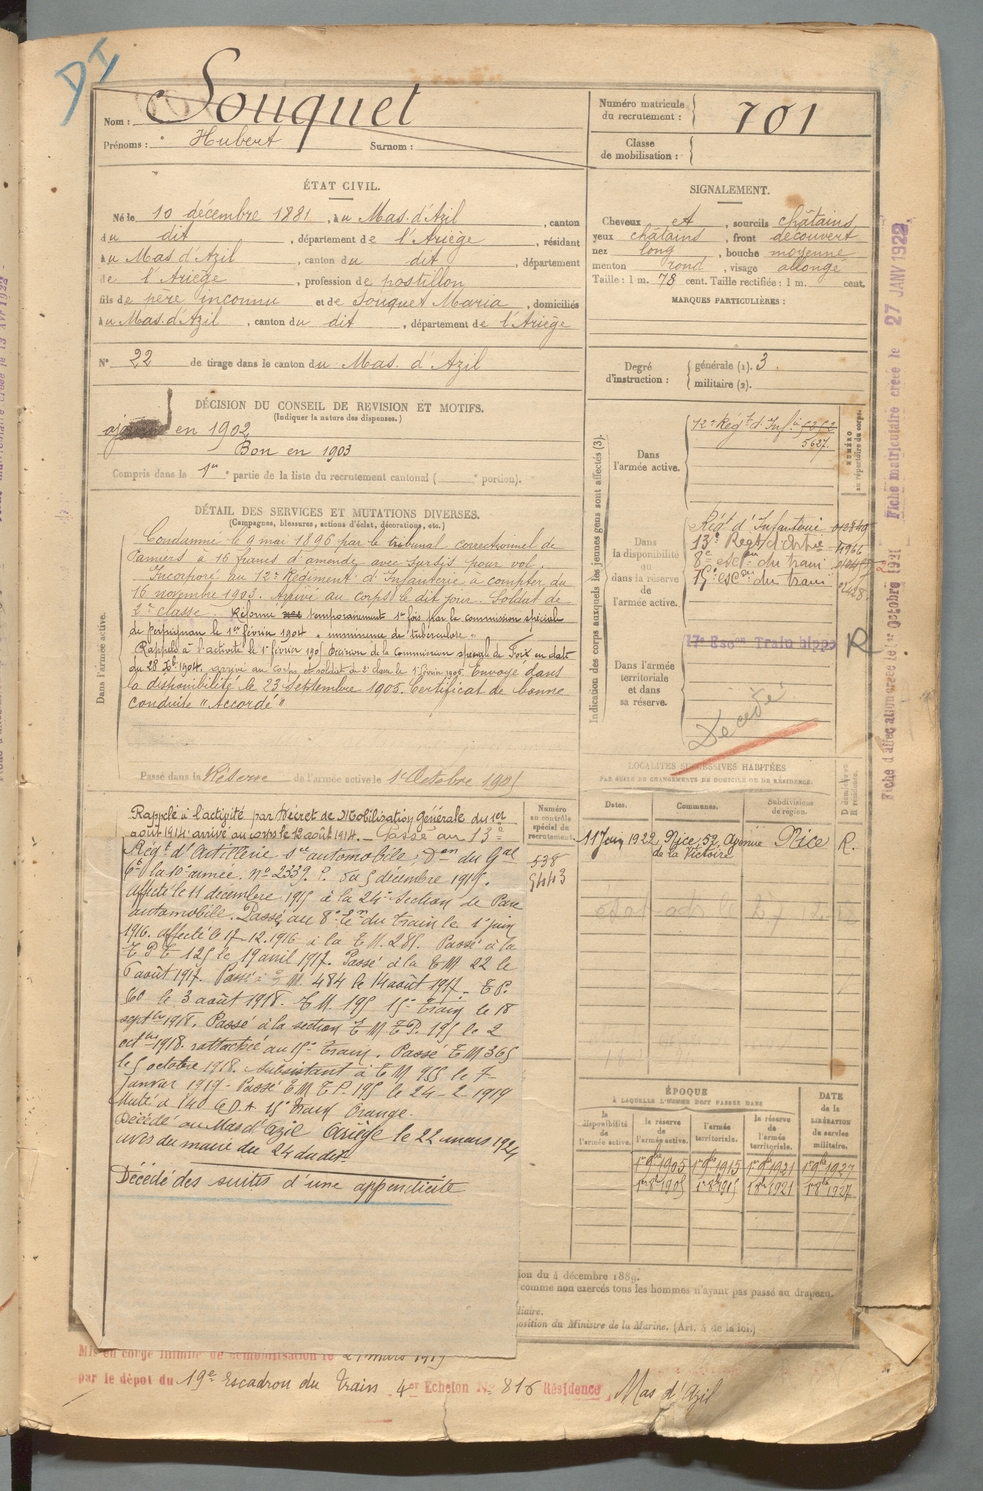 DI
Nom : Souquet
Prénoms : Hubert Surnom :
Numéro matricule du recrutement : 701
Classe de mobilisation :
ÉTAT CIVIL.
Né le 10 décembre 1881, à u Mas-d'Azil, canton
du dit, département de l'Ariège, résidant
à u Mas d'Azil, canton du dit, département
de l'Ariège, profession de postillon
fils de père inconnu et de Souquet Maria, domiciliés
à u Mas-d'Azil, canton du dit, département de l'Ariège
N° 22 de tirage dans le canton du Mas-d'Azil
SIGNALEMENT.
Cheveux et, sourcils châtains
yeux châtains, front découvert
nez long, bouche moyenne
menton rond, visage allongé
Taille : 1 m. 78 cent. Taille rectifiée : 1 m. cent.
MARQUES PARTICULIÈRES :
Degré d'instruction : générale (1). 3.
militaire (2).
DÉCISION DU CONSEIL DE REVISION ET MOTIFS.
(Indiquer la nature des dispenses.)
en 1902
Bon en 1903
Compris dans la 1re partie de la liste du recrutement cantonal ( portion).
DÉTAIL DES SERVICES ET MUTATIONS DIVERSES.
(Campagnes, blessures, actions d'éclat, décorations, etc.)
Dans l'armée active.
Condamné le 9 mai 1896 par le tribunal correctionnel de
Pamiers à 16 francs d'amende avec sursis pour vol.
Incorporé au 12e Régiment d'Infanterie à compter du
16 novembre 1903. Arrivé au corps le dit jour. Soldat de
2e classe. Réformé temporairement 1re fois par la commission spéciale
de Perpignan le 1er février 1904 "imminence de tuberculose"
Rappelé à l'activité le 1er février 1905 Décision de la Commission spéciale de Foix en date
du 28 Xbre 1904, arrivé au corps et soldat de 2e classe le 1er février 1905 Envoyé dans
la disponibilité le 23 septembre 1905. Certificat de bonne
conduite "Accordé"
Passé dans la Réserve de l'armée active le 1er Octobre 1905
Indication des corps auxquels les jeunes gens sont affectés (3).
NUMÉRO au répertoire du corps.
Dans l'armée active.
12e Régt d'Inf.
5627.
Dans la disponibilité ou dans la réserve de l'armée active.
Régt d'Infanterie
13e Regt d'Artie
8e escon du train
15e escon du train
Dans l'armée territoriale et dans sa réserve.
Train hippo
R
Décédé
Fiche d'affectation créée le 1er Octobre 1921
Fiche matriculaire créée le 27 JANV 1922
LOCALITÉS SUCCESSIVES HABITÉES
PAR SUITE DE CHANGEMENTS DE DOMICILE OU DE RÉSIDENCE.
Dates. Communes. Subdivisions de région. D domicile R résidence.
1922 Nice, 52, Avenue de la Victoire Nice R.
Numéro au contrôle spécial du recrutement
538
9443
Rappelé à l'activité par Décret de Mobilisation Générale du 1er
août 1914 arrivé au corps le 12 août 1914. Passé au 13e
Régt d'Artillerie son automobile, Don du Gal
Ct la 10e armée. No 2339. P. du 5 décembre 1915.
Affecté le 11 décembre 1915 à la 24e Section de Parc
automobile. Passé au 8e Eon du train le 1er juin
1916. Affecté le 17-12-1916 à la T.M. 285. Passé à la
T P T 125 le 19 avril 1917. Passé à la T M 22 le
6 août 1917. Passé T M. 484 le 14 août 1917. T P.
60 le 3 août 1918. T M. 195 15e Train le 18
septbre 1918. Passé à la section T M T P. 195 le 2
octbre 1918. rattachée au 15e Train. Passé T M 365
le 5 octobre 1918. Subsistant à T M 955 le 7-
janvier 1919- Passé T M T P. 195 le 24-2-1919
15e Train Orange.
Décédé au Mas d'Azil Ariège le 22 mars 1924
avis du maire du 24 dudit
Décédé des suites d'une appendicite
ÉPOQUE
À LAQUELLE L'HOMME DOIT PASSER DANS
la disponibilité de l'armée active. la réserve de l'armée active. l'armée territoriale. la réserve de l'armée territoriale.
DATE de la LIBÉRATION du service militaire.
1er 9bre 1905 1er 9bre 1915 1er 9bre 1921 1er 9bre 1927
1er 8bre 1905 1er 8bre 1915 1er 8bre 1921 1er 8bre 1927
du 4 décembre 1889.
comme non exercés tous les hommes n'ayant pas passé au drapeau.
Ministre de la Marine. (Art. 4 de la loi.)
Mis en congé illimité de démobilisation le
par le dépôt du 19e Escadron du Train 4e Echelon No 816 Résidence Mas d'Azil